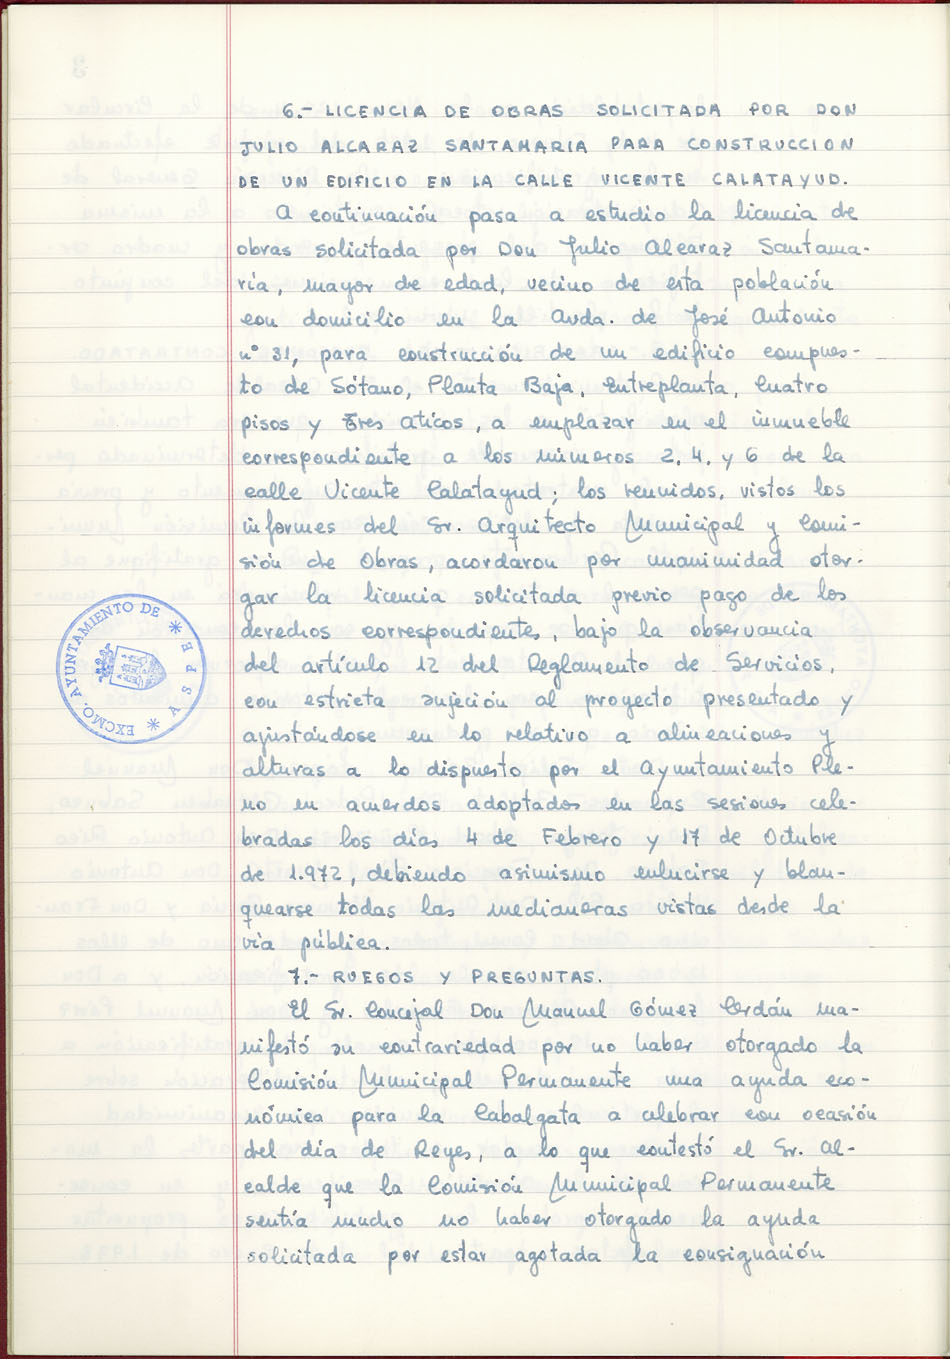 6.- LICENCIA DE OBRAS SOLICITADA POR DON
JULIO ALCARAZ SANTAMARIA PARA CONSTRUCCION
DE UN EDIFICIO EN LA CALLE VICENTE CALATAYUD.
A continuación pasa a estudio la licencia de
obras solicitada por Don Julio Alcaraz Santama-
ría, mayor de edad, vecino de esta población
con domicilio en la Avda. de José Antonio
nº 31, para construcción de un edificio compues-
to de Sótano, Planta Baja, Entreplanta, Cuatro
pisos y Tres aticos, a emplazar en el inmueble
correspondiente a los números 2, 4, y 6 de la
calle Vicente Calatayud; los reunidos, vistos los
informes del Sr. Arquitecto Municipal y Comi-
sión de Obras, acordaron por unanimidad otor-
gar la licencia solicitada previo pago de los
derechos correspondientes, bajo la observancia
del artículo 12 del Reglamento de Servicios,
con estrieta sujeción al proyecto presentado y
ajustándose en lo relativo a alineaciones y
alturas a lo dispuesto por el Ayuntamiento Ple-
no en acuerdos adoptados en las sesiones cele-
bradas los días 4 de Febrero y 17 de Octubre
de 1.972, debiendo asimismo enlucirse y blan-
quearse todas las medianeras vistas desde la
vía pública.
7.- RUEGOS Y PREGUNTAS.
El Sr. Concejal Don Manuel Gómez Cerdán ma-
nifestó su contrariedad por no haber otorgado la
Comisión Municipal Permanente una ayuda eco-
nómica para la Cabalgata a celebrar con ocasión
del día de Reyes, a lo que contestó el Sr. Al-
calde que la Comisión Municipal Permanente
sentía mucho no haber otorgado la ayuda
solicitada por estar agotada la consignación
EXCMO. AYUNTAMIENTO DE * ASPE *